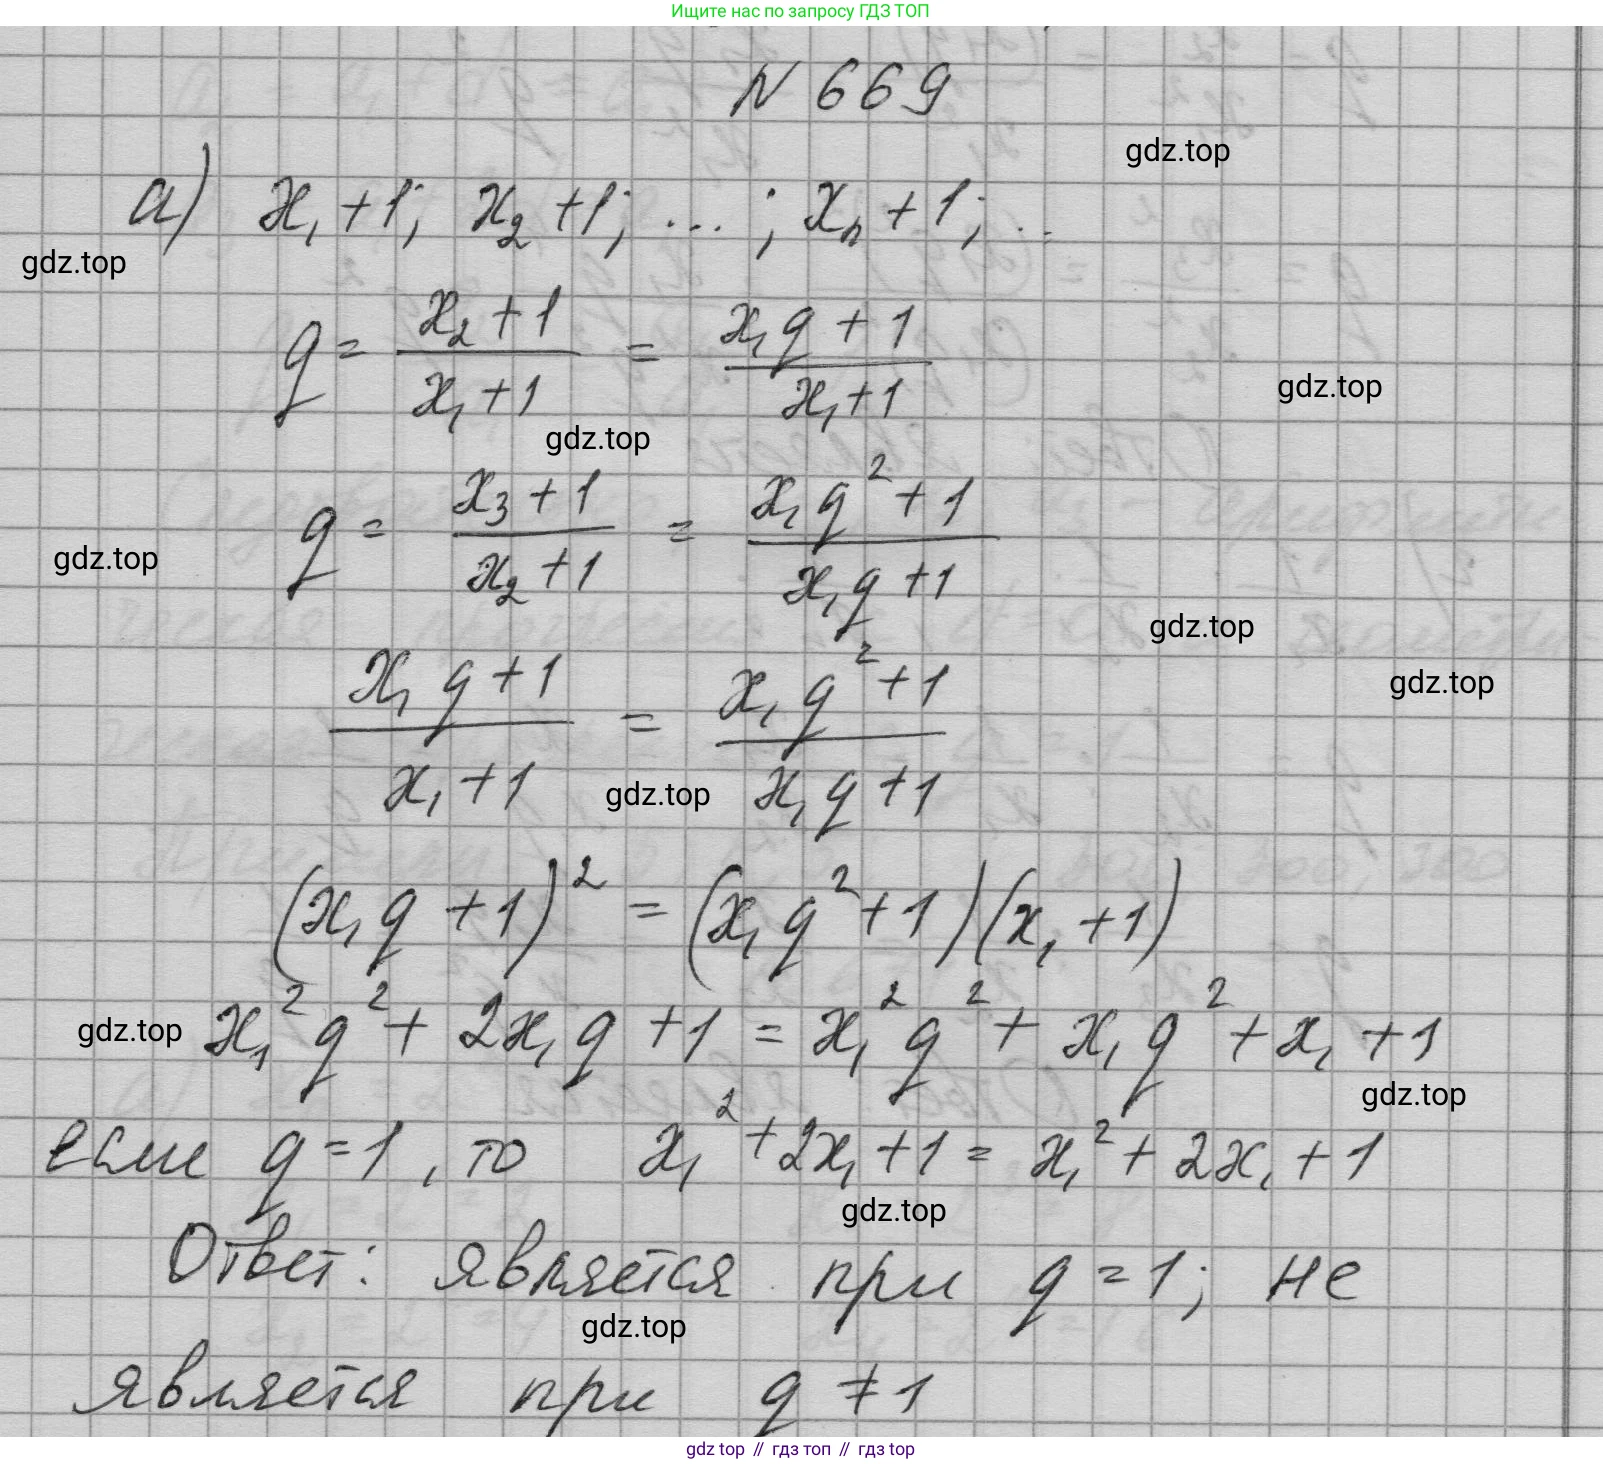 Ищите нас по запросу ГДЗ ТОП
N 669
gdz.top
а) x₁ + 1; x₂ + 1; ...; xₙ + 1; ...
gdz.top
q = (x₂ + 1)/(x₁ + 1) = (x₁q + 1)/(x₁ + 1)
gdz.top
gdz.top
q = (x₃ + 1)/(x₂ + 1) = (x₁q² + 1)/(x₁q + 1)
gdz.top
gdz.top
(x₁q + 1)/(x₁ + 1) = (x₁q² + 1)/(x₁q + 1)
gdz.top
gdz.top
(x₁q + 1)² = (x₁q² + 1)(x₁ + 1)
gdz.top
x₁²q² + 2x₁q + 1 = x₁²q² + x₁q² + x₁ + 1
gdz.top
если q = 1, то x₁² + 2x₁ + 1 = x₁² + 2x₁ + 1
gdz.top
Ответ: является при q = 1; не
gdz.top
является при q ≠ 1
gdz top // гдз топ // гдз top